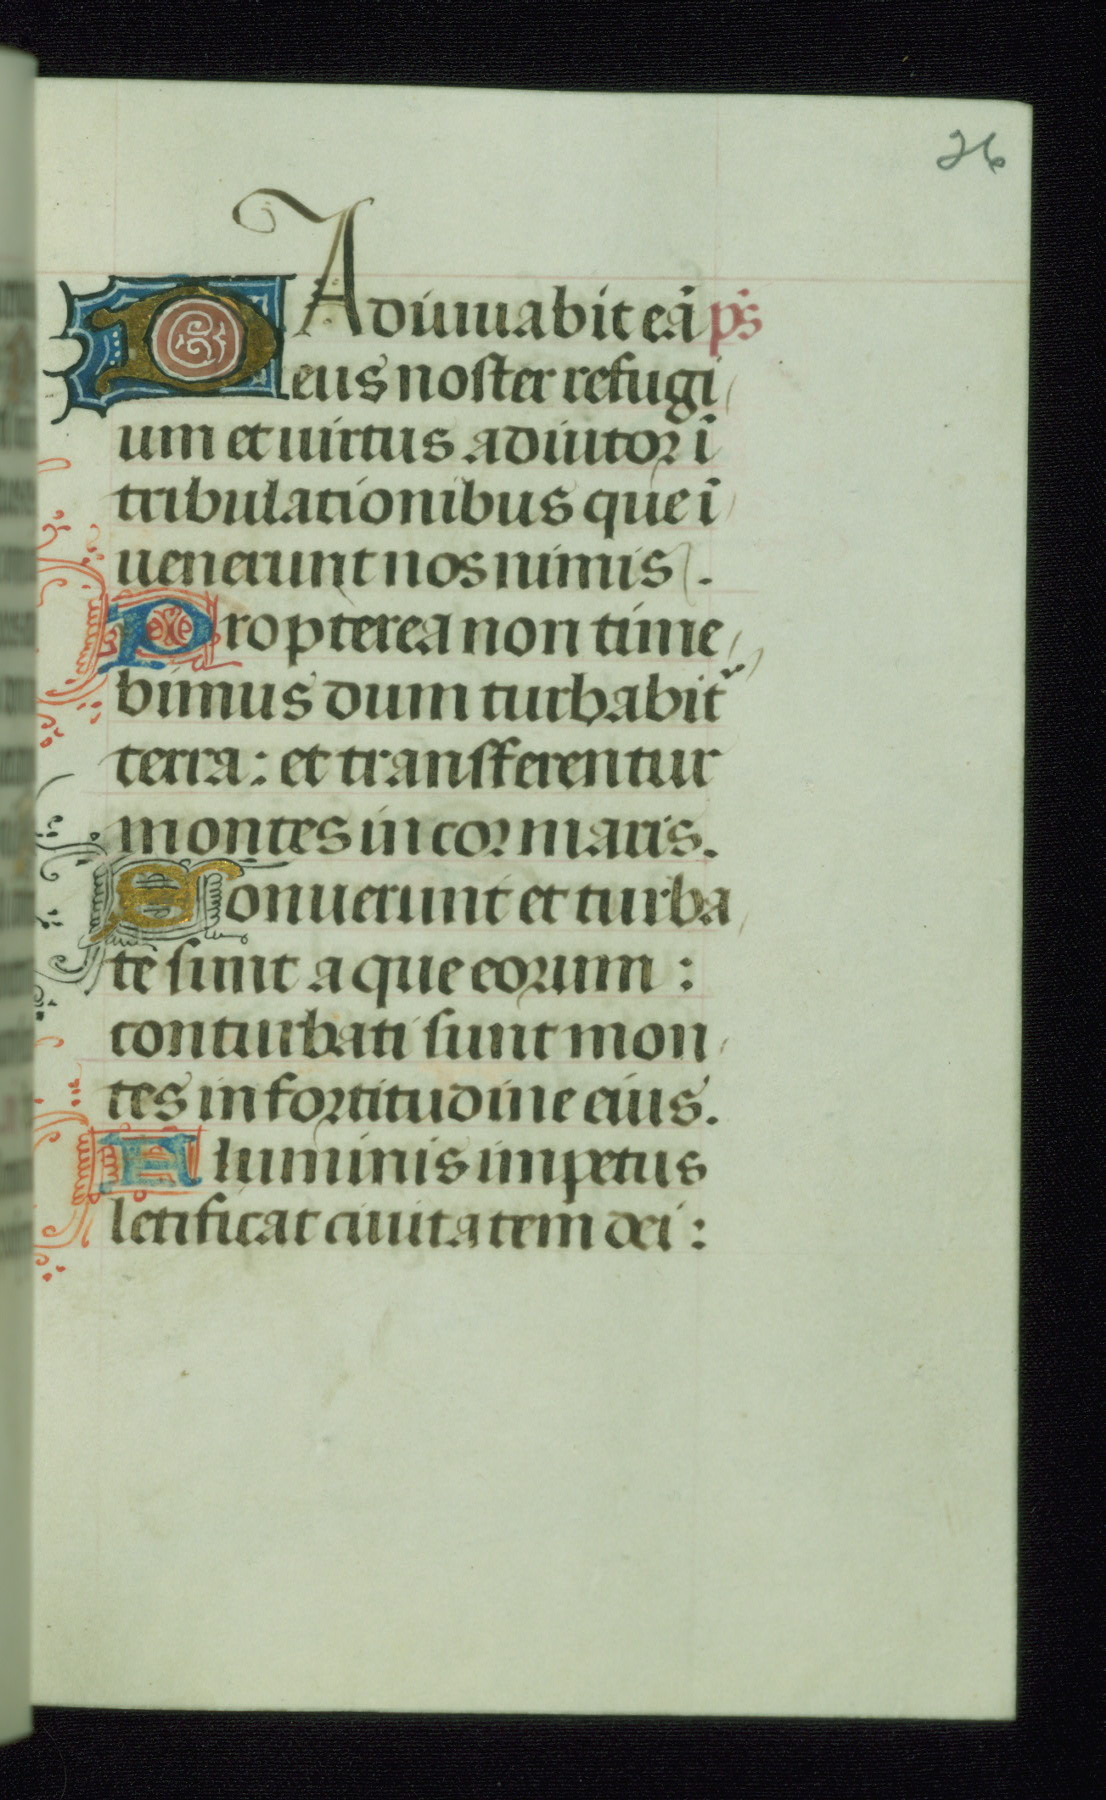 26
Adiuuabit eā ps̄
Deus noster refugi
um et uirtus adiutor ī
tribulationibus que ī
uenerunt nos nimis.
Propterea non time
bimus dum turbabit᷑
terra: et transferentur
montes in cor maris.
Sonuerunt et turba
te sunt aque eorum:
conturbati sunt mon
tes in fortitudine eius.
Fluminis impetus
letificat ciuitatem dei: